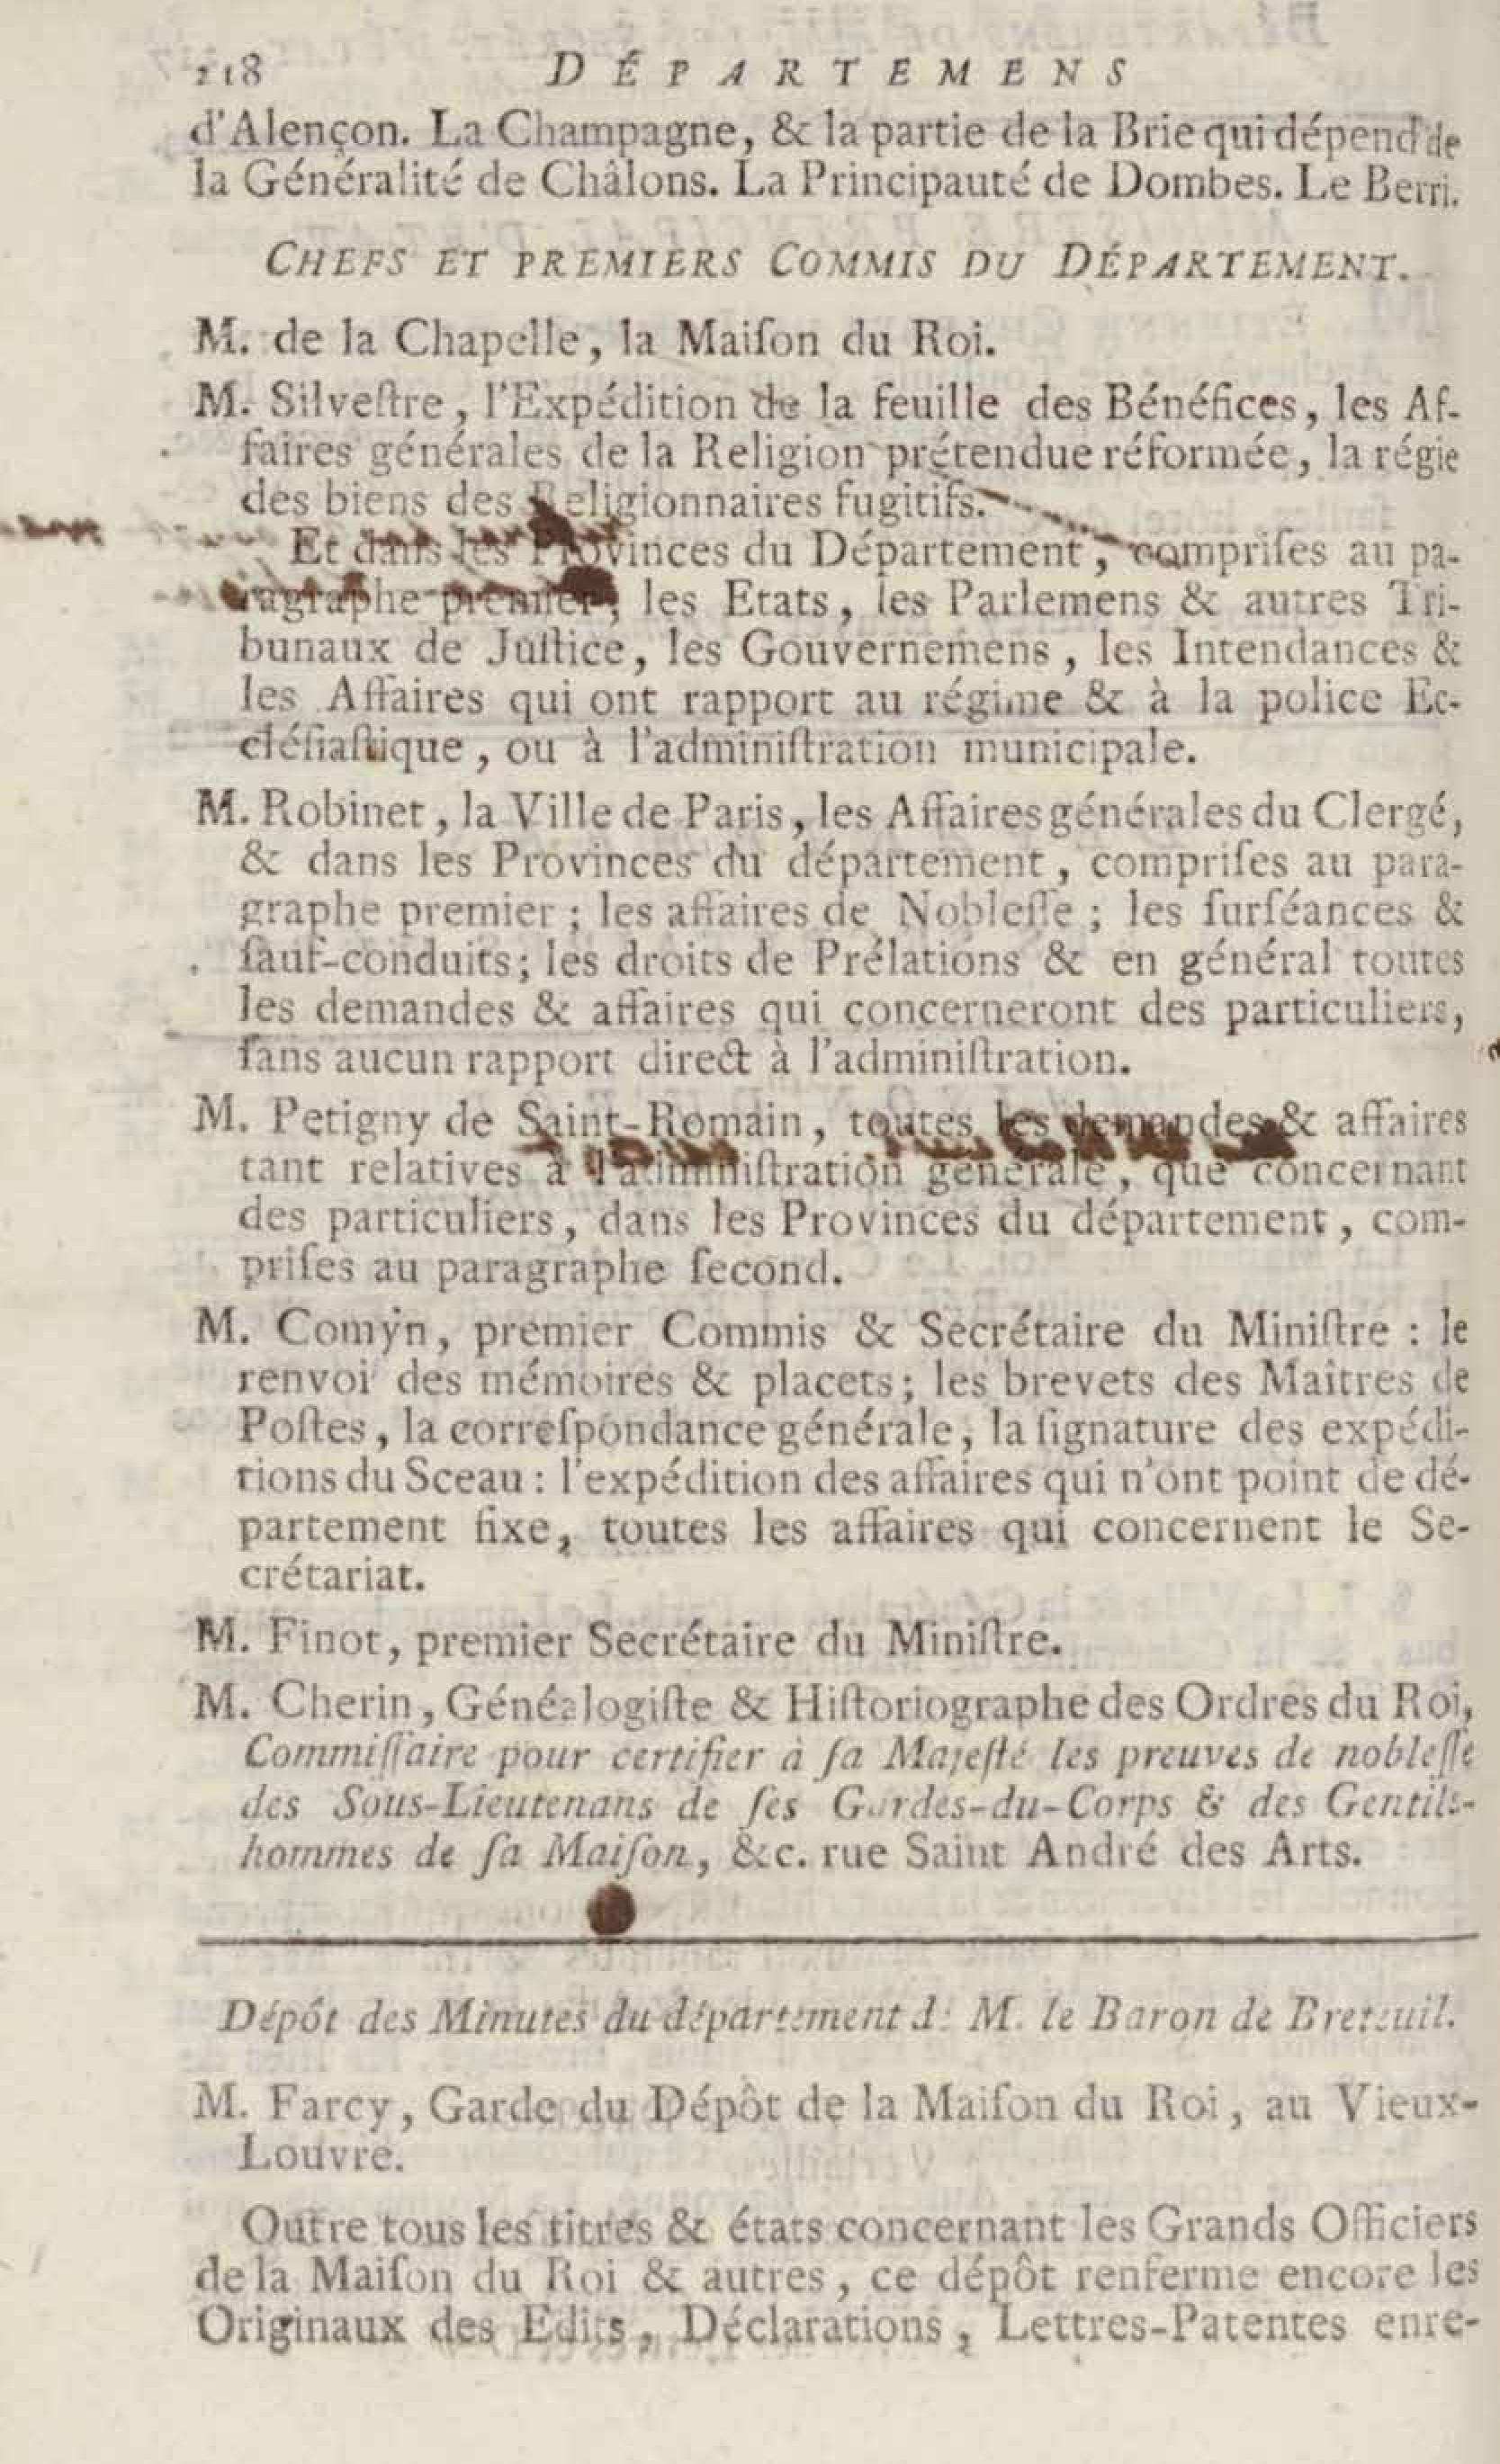 218 DÉPARTEMENS
d'Alençon. La Champagne, & la partie de la Brie qui dépend de
la Généralité de Châlons. La Principauté de Dombes. Le Berri.
CHEFS ET PREMIERS COMMIS DU DÉPARTEMENT.
M. de la Chapelle, la Maiſon du Roi.
M. Silveſtre, l'Expédition de la feuille des Bénéfices, les Af-
faires générales de la Religion prétendue réformée, la régie
des biens des Religionnaires fugitifs.
Et dans les Provinces du Département, compriſes au pa-
ragraphe premier, les Etats, les Parlemens & autres Tri-
bunaux de Juſtice, les Gouvernemens, les Intendances &
les Affaires qui ont rapport au régime & à la police Ec-
cléſiaſtique, ou à l'adminiſtration municipale.
M. Robinet, la Ville de Paris, les Affaires générales du Clergé,
& dans les Provinces du département, compriſes au para-
graphe premier; les affaires de Nobleſſe; les ſurſéances &
ſauf-conduits; les droits de Prélations & en général toutes
les demandes & affaires qui concerneront des particuliers,
ſans aucun rapport direct à l'adminiſtration.
M. Petigny de Saint-Romain, toutes les demandes & affaires
tant relatives à l'adminiſtration générale, que concernant
des particuliers, dans les Provinces du département, com-
priſes au paragraphe ſecond.
M. Comyn, premier Commis & Secrétaire du Miniſtre : le
renvoi des mémoires & placets; les brevets des Maîtres de
Poſtes, la correſpondance générale, la ſignature des expédi-
tions du Sceau : l'expédition des affaires qui n'ont point de dé-
partement fixe, toutes les affaires qui concernent le Se-
crétariat.
M. Finot, premier Secrétaire du Miniſtre.
M. Cherin, Généalogiſte & Hiſtoriographe des Ordres du Roi,
Commiſſaire pour certifier à ſa Majeſté les preuves de nobleſſe
des Sous-Lieutenans de ſes Gardes-du-Corps & des Gentils-
hommes de ſa Maiſon, &c. rue Saint André des Arts.
Dépôt des Minutes du département de M. le Baron de Breteuil.
M. Farcy, Garde du Dépôt de la Maiſon du Roi, au Vieux-
Louvre.
Outre tous les titres & états concernant les Grands Officiers
de la Maiſon du Roi & autres, ce dépôt renferme encore les
Originaux des Edits, Déclarations, Lettres-Patentes enre-